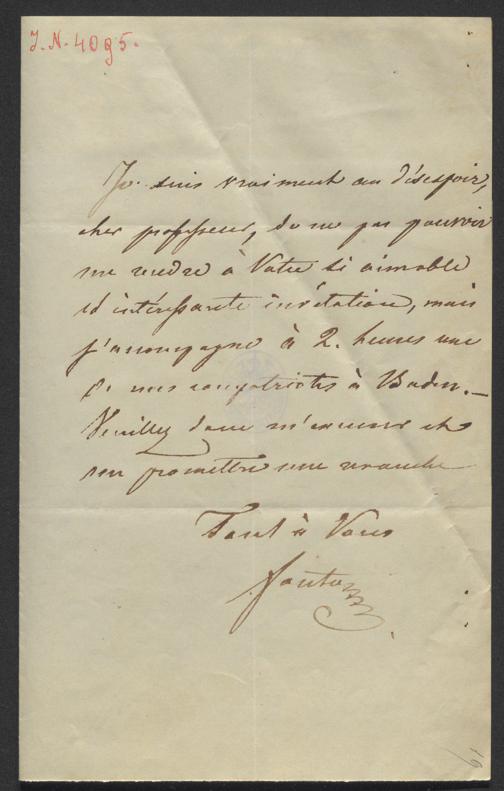 J.N. 4095.
Je suis vraiment au désespoir,
cher professeur, de ne pas pouvoir
me rendre à Votre si aimable
et intéressante invitation, mais
j'accompagne à 2. heures une
de mes compatriotes à Baden. _
Veuillez donc m'excuser et
me promettre une revanche
Tout à Vous